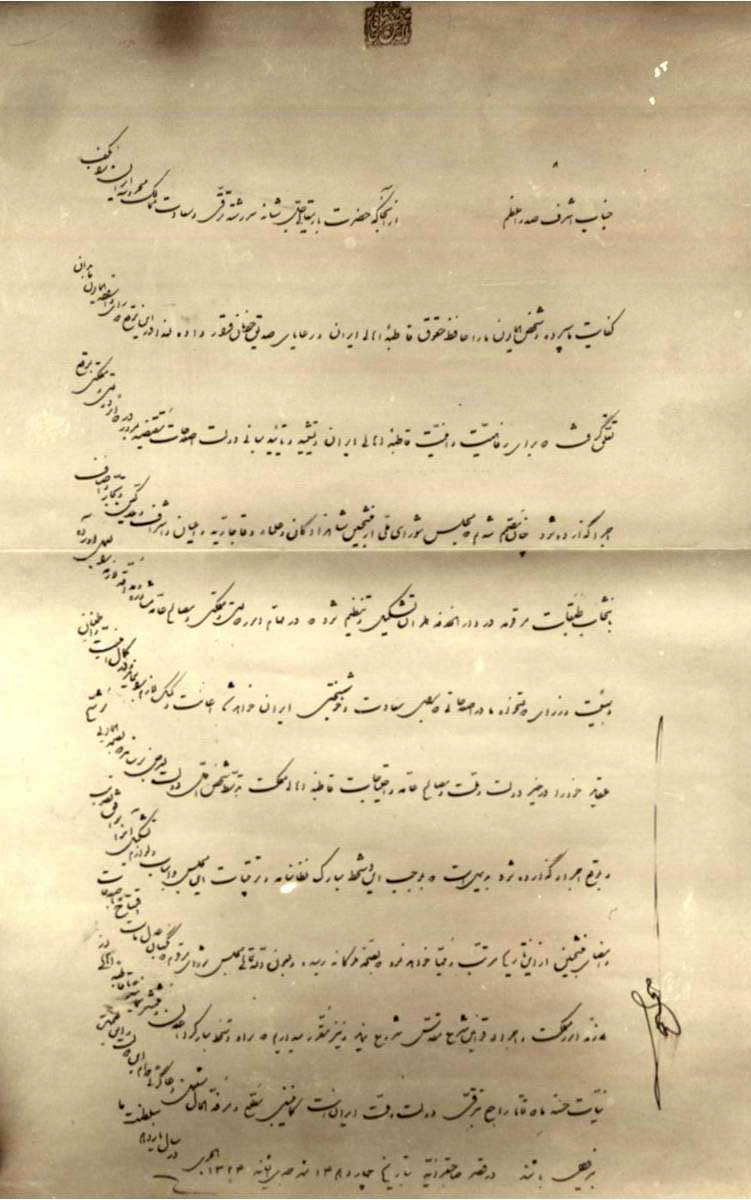 جناب اشرف صدراعظم از آنجا که حضرت باریتعالی جل شانه سررشته ترقی و سعادت ممالک محروسه ایران را بکف
کفایت ما سپرده و شخص همایون ما را حافظ حقوق قاطبه اهالی ایران و رعایای صدیق خودمان قرار داده لهذا در این موقع که رای و اراده همایون ما بدان
تعلق گرفت که برای رفاهیت و امنیت قاطبه اهالی ایران و تشیید و تایید مبانی دولت اصلاحات مقتضیه بمرور در دوائر دولتی و مملکتی بموقع
اجرا گذارده شود چنان مصمم شدیم که مجلس شورای ملی از منتخبین شاهزادگان و علماء و قاجاریه و اعیان و اشراف و ملاکین و تجار و اصناف
بانتخاب طبقات مرقومه در دارالخلافه طهران تشکیل و تنظیم شود که در مهام امور دولتی و مملکتی و مصالح عامه مشاوره و مداقه لازمه را بعمل آورده
و بهیئت وزرای دولتخواه ما در اصلاحاتی که برای سعادت و خوشبختی ایران خواهد شد اعانت و کمک لازم را بنماید و در کمال امنیت و اطمینان
عقاید خود را در خیر دولت و ملت و مصالح عامه و احتیاجات قاطبه اهالی مملکت بتوسط شخص اول دولت بعرض برساند که بصحه همایونی موشح
و بموقع اجرا گذارده شود بدیهی است که بموجب این دستخط مبارک نظامنامه و ترتیبات این مجلس و اسباب و لوازم تشکیل آنرا موافق تصویب
و امضای منتخبین از این تاریخ مرتب و مهیا خواهد نمود که بصحه ملوکانه رسیده و بعون الله تعالی مجلس شورای مرقوم که نگهبان عدل ماست افتتاح و باصلاحات
لازمه امور مملکت و اجراء قوانین شرع مقدس شروع نماید و نیز مقرر میداریم که سواد دستخط مبارک را اعلان و منتشر نمایید تا قاطبه اهالی از
نیات حسنه ما که تماما راجع بترقی دولت و ملت ایران است کماینبغی مطلع و مرفه الحال مشغول دعاگوئی دوام این دولت و این نعمت
بی زوال باشند در قصر صاحبقرانیه بتاریخ چهاردهم شهر جمادی الثانیه ۱۳۲۴ هجری در سال یازدهم سلطنت ما